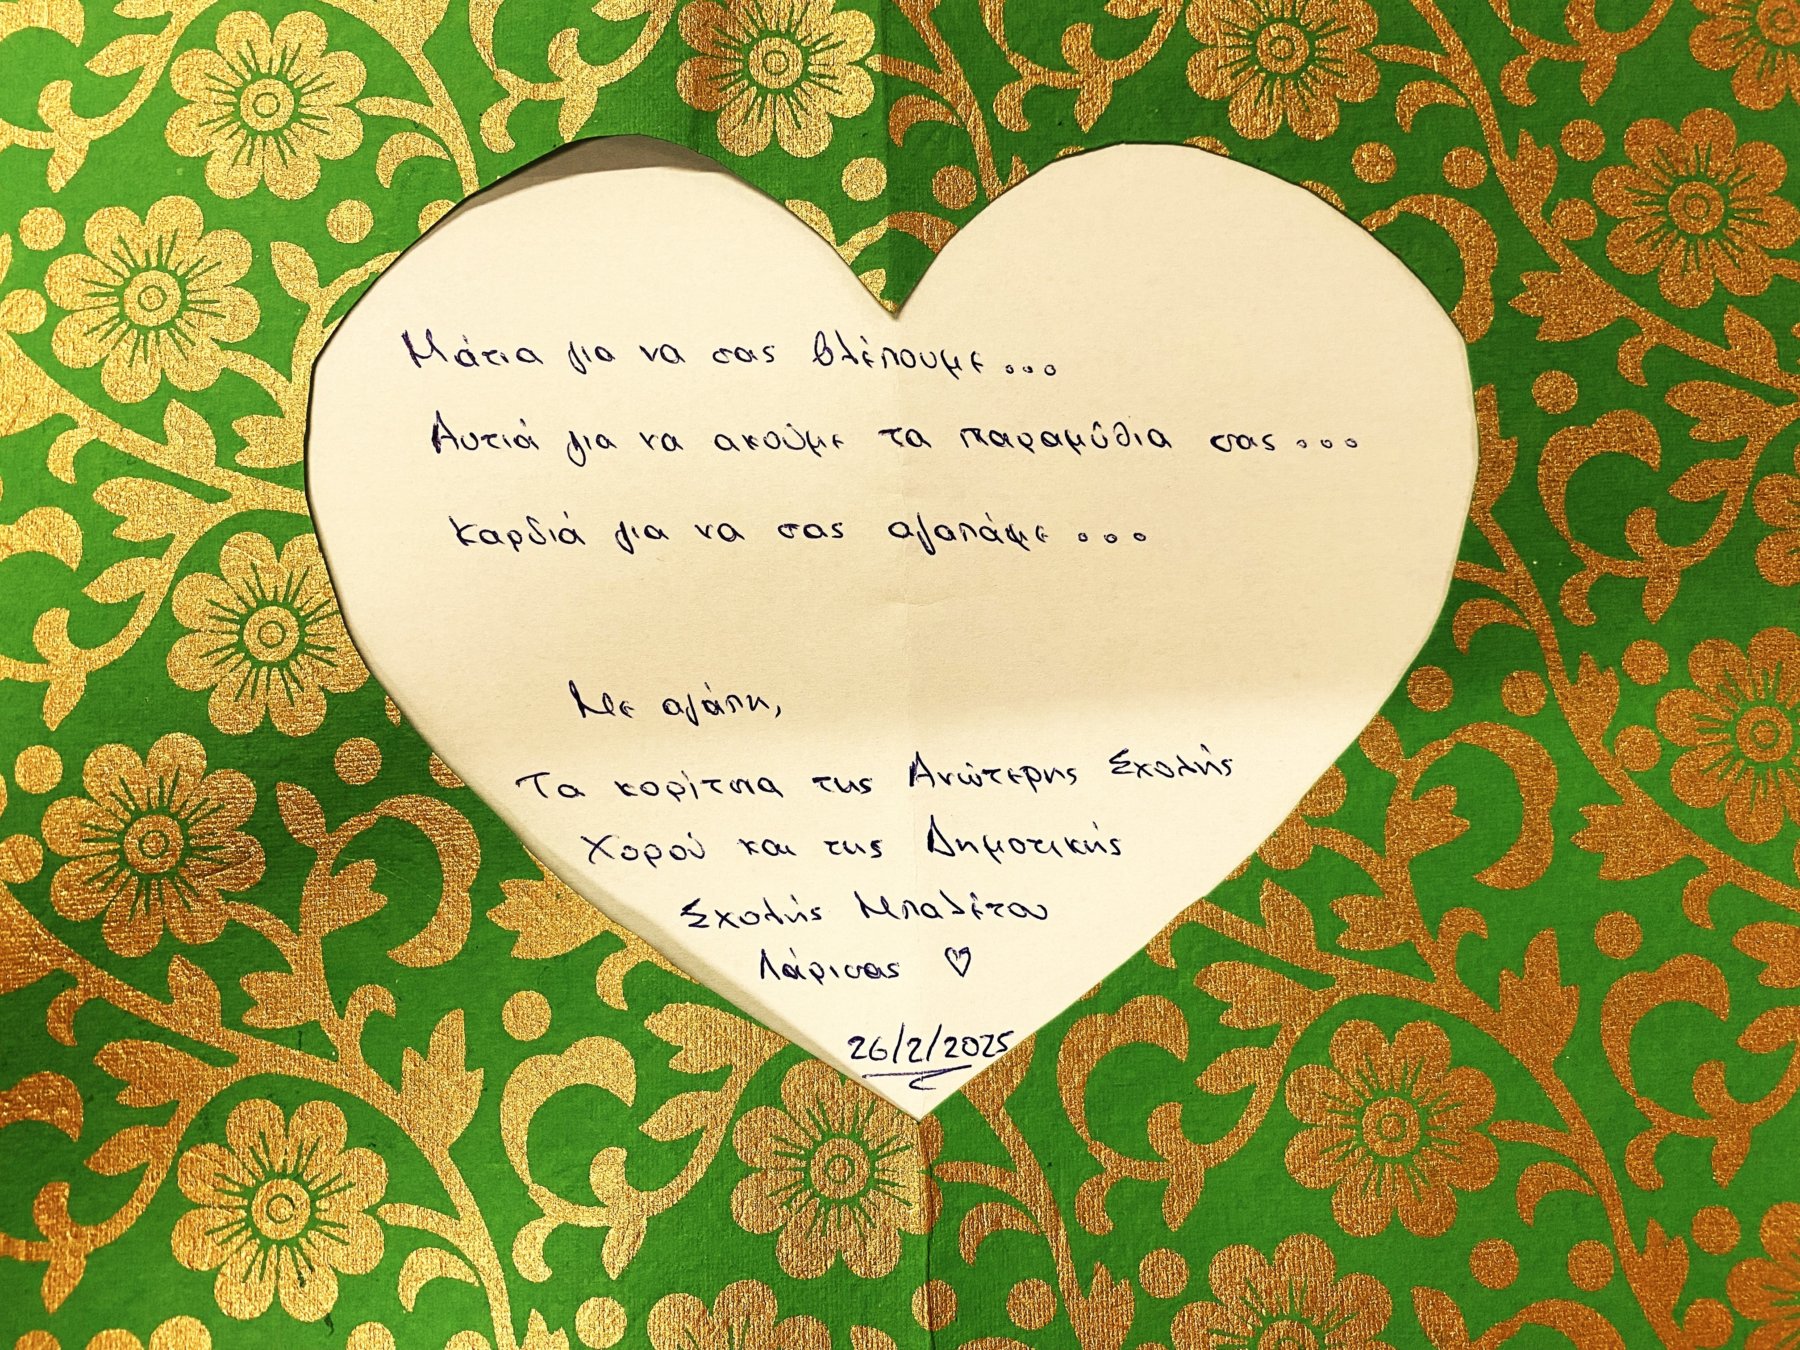 Μάτια για να σας βλέπουμε...
Αυτιά για να ακούμε τα παραμύθια σας...
Καρδιά για να σας αγαπάμε...
Με αγάπη,
Τα κορίτσια της Ανώτερης Σχολής
Χορού και της Δημοτικής
Σχολής Μπαλέτου
Λάρισας ♡
26/2/2025